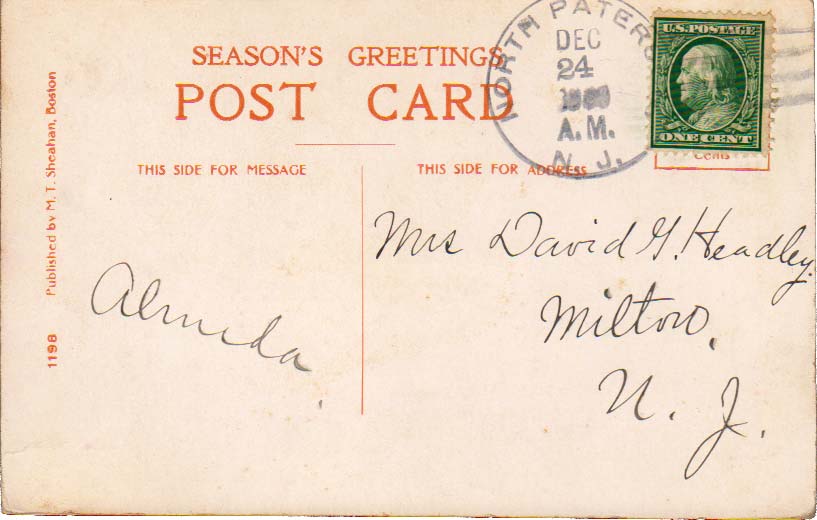 SEASON'S GREETINGS
POST CARD
THIS SIDE FOR MESSAGE
THIS SIDE FOR ADDRESS
NORTH PATERS
DEC
24
A.M.
N. J.
U.S. POSTAGE
ONE CENT
Cents
Published by M. T. Sheahan, Boston
1198
Almeda.
Mrs David G. Headley.
Milton,
N. J.